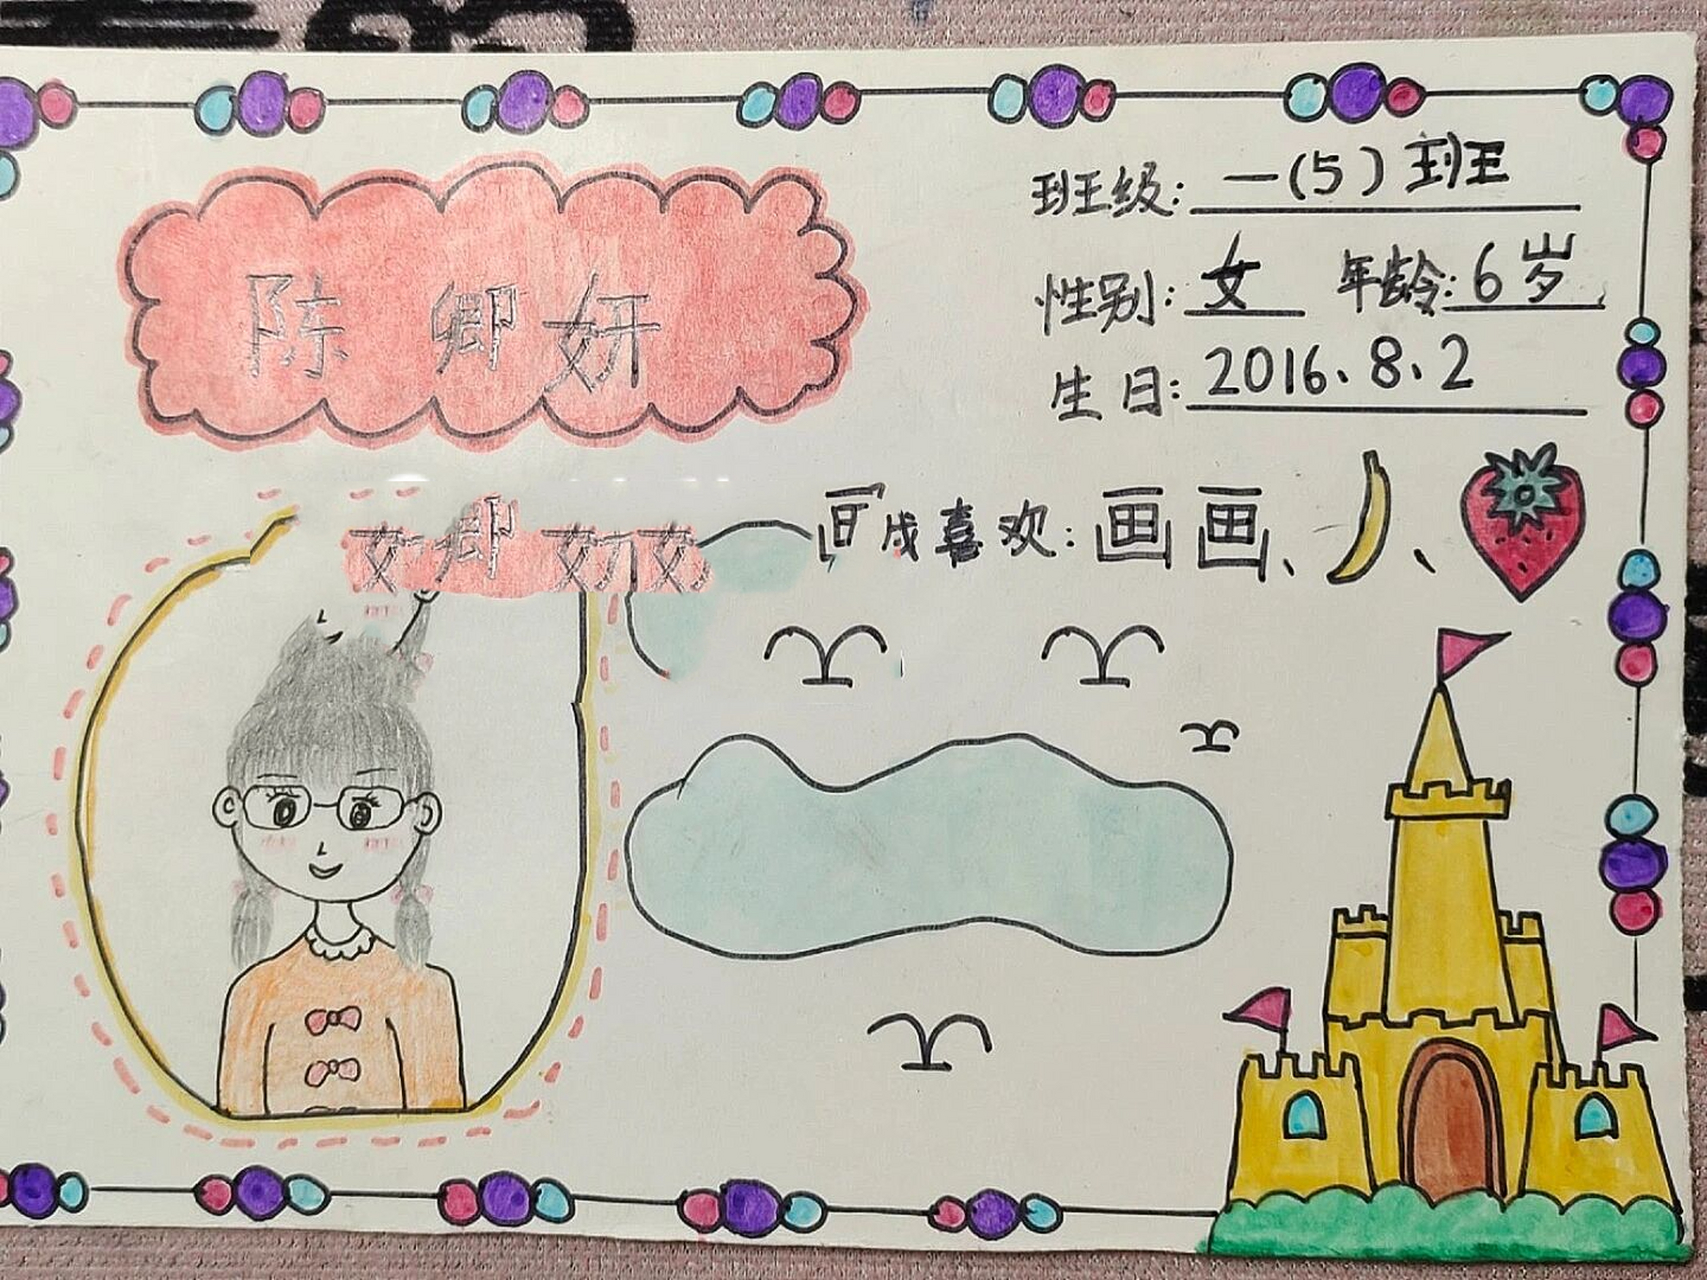 陈 卿 妍
班级: 一(5)班
性别: 女 年龄: 6岁
生日: 2016、8、2
喜欢: 画画、